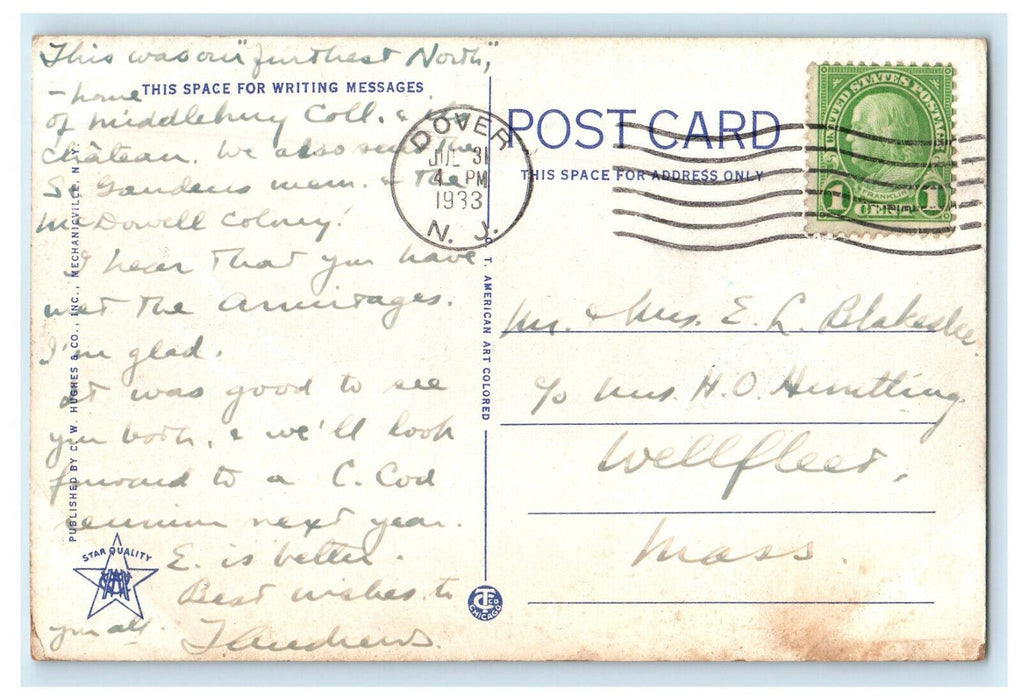 This was our "furthest North",
THIS SPACE FOR WRITING MESSAGES
- home
of Middlebury Coll. & its
Château. We also seen the
St Gaudens mem. & the
McDowell Colony!
I hear that you have
met the Armitages.
I'm glad.
It was good to see
you both, & we'll look
forward to a C. Cod
reunion next year.
E. is better.
Best wishes to
you all. Andrews
PUBLISHED BY C. W. HUGHES & CO., INC., MECHANICVILLE, N.Y.
STAR QUALITY
DOVER
JUL 31
4 PM
1933
N. J.
C. T. AMERICAN ART COLORED
CT CO
CHICAGO
POST CARD
THIS SPACE FOR ADDRESS ONLY
UNITED STATES POSTAGE
FRANKLIN
1 CENT 1
Mr. & Mrs. E. L. Blakeslee
c/o Mrs. H. O. Huntting
Wellfleet,
Mass.